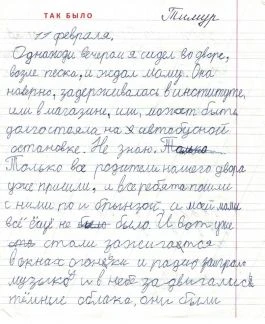 ТАК БЫЛО
Тимур
11 февраля.
Однажди вечером я сидел во дворе,
возле песка, и ждал маму. Она
наверно, задерживалась в институте,
или в магазине, или, может быть
долго стояла на автобусной
остановке. Не знаю. Только
Только все родители нашего двора
уже пришли, и все ребята пошли
с ними по и брынзой, а моей мамы
всё ещё не было было. И вот уже
стали зажигается
в окнах огоньки и радио заиграл
музыку и в небе за двигались
тёмные облака, они были